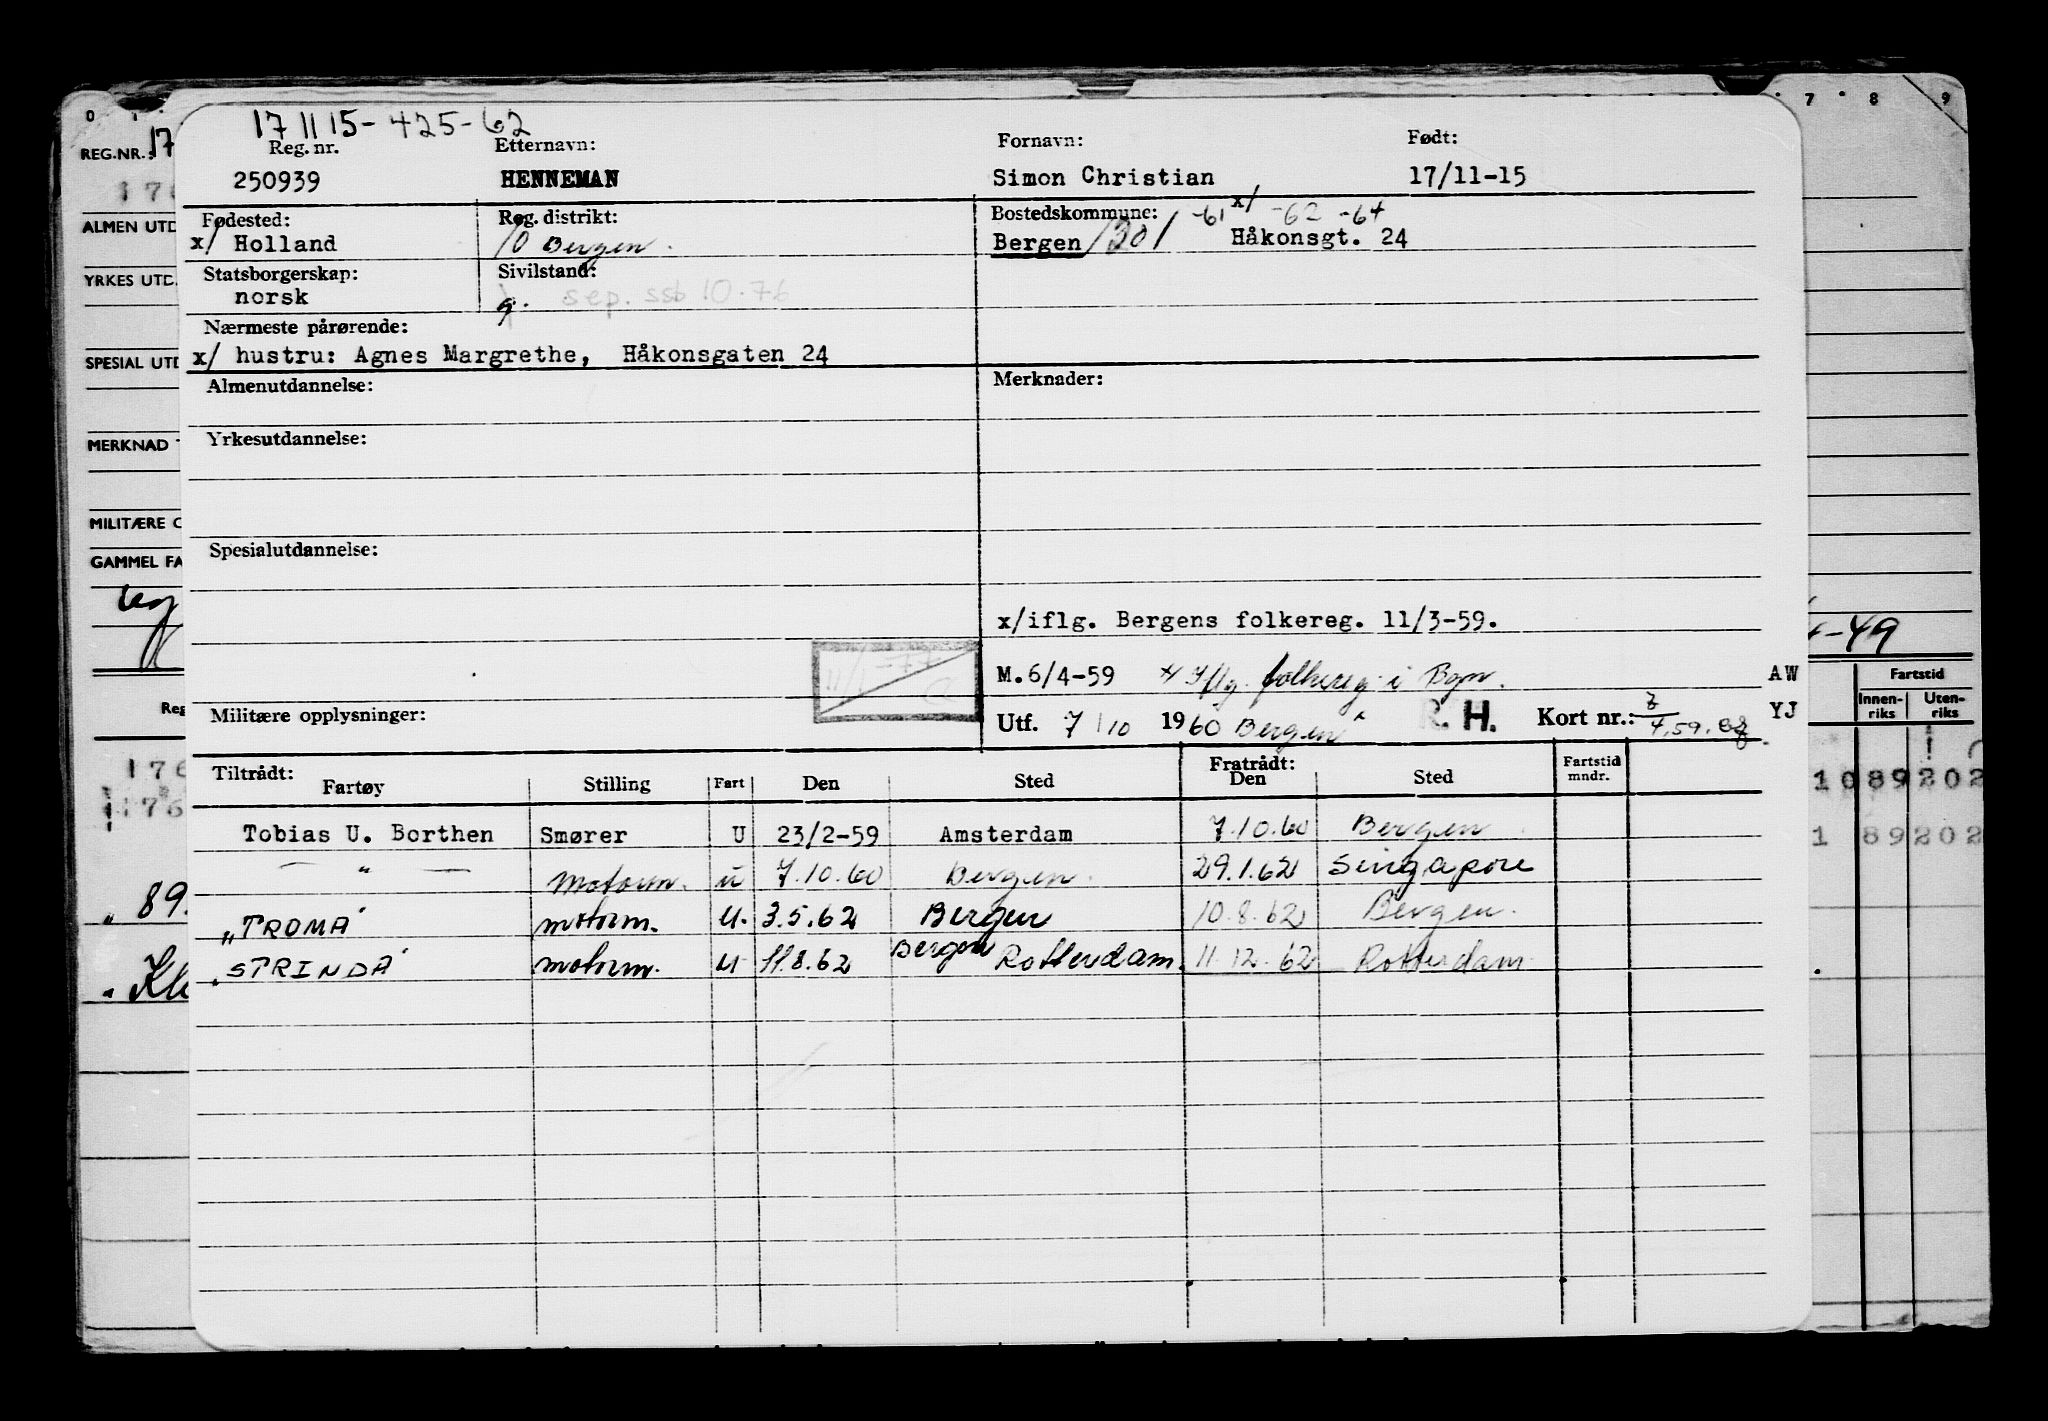 0 1 7 8 9
17 11 15 - 425 - 62
REG.NR.: 17 Reg. nr. Etternavn: Fornavn: Født:
250939 HENNEMAN Simon Christian 17/11-15
Fødested: Reg. distrikt: Bostedskommune: -61 x/ -62 -64
ALMEN UTD
x/ Holland 10 Bergen. Bergen /301 Håkonsgt. 24
Statsborgerskap: Sivilstand:
YRKES UTD.
norsk g. sep. ssb 10.76
Nærmeste pårørende:
SPESIAL UTD x/ hustru: Agnes Margrethe, Håkonsgaten 24
Almenutdannelse: Merknader:
MERKNAD Yrkesutdannelse:
MILITÆRE O
Spesialutdannelse:
GAMMEL FA
x/iflg. Bergens folkereg. 11/3-59.
-49
M.6/4-59 x/ Iflg. folkereg. i Bgn. AW
Fartstid
Militære opplysninger: Utf. 7/10 1960 Bergen R. H. Kort nr.: YJ
Reg Innen-riks Uten-riks
Tiltrådt: Fratrådt: Fartstid mndr.
Fartøy Stilling Fart Den Sted Den Sted
176 1089202
Tobias U. Borthen Smører U 23/2-59 Amsterdam 7.10.60 Bergen
176 1 89202
— " — Motorm. u 7.10.60 Bergen. 29.1.62 Singapore
89.
"TROMÅ" motorm. u. 3.5.62 Bergen 10.8.62 Bergen.
"STRINDA" motorm. u 11.8.62 Bergen Rotterdam. 11.12.62 Rotterdam